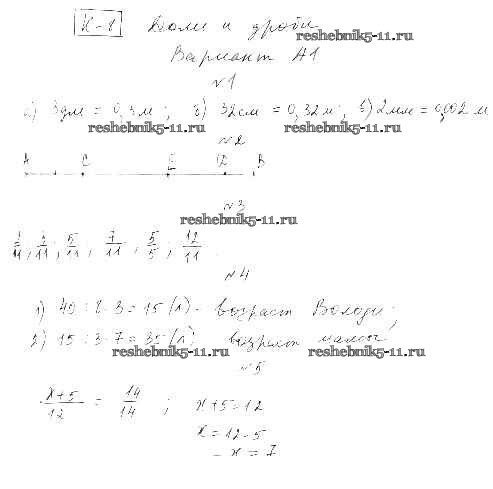 К-1 Доли и дроби
reshebnik5-11.ru
Вариант А1
№1
а) 3дм = 0,3м; б) 32см = 0,32м; в) 2мм = 0,002 м
reshebnik5-11.ru reshebnik5-11.ru
№2
A C E D B
№3
reshebnik5-11.ru
3/11; 5/11; 7/11; 5/5; 12/11.
№4
1) 40 : 8 · 3 = 15 (л) - возраст Володи;
2) 15 : 3 · 7 = 35 (л) возраст мамы
reshebnik5-11.ru reshebnik5-11.ru
№5
x+5/12 = 14/14; x+5=12
x=12-5
x=7